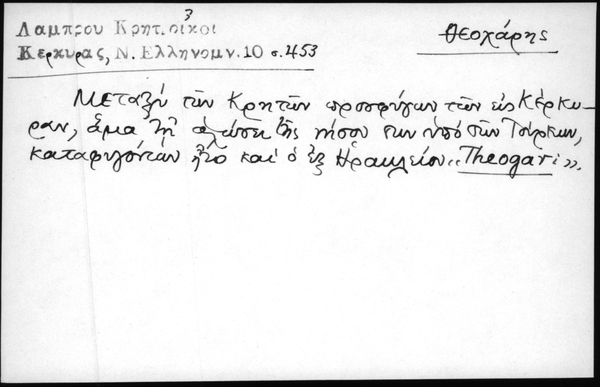 Λαμπρου Κρητ. οικοι 3
Κερκυρας, Ν. Ελληνομν. 10 σ. 453
Θεοχάρης
Μεταξύ τῶν Κρητῶν προσφύγων τῶν εἰς Κέρκυ-
ραν, ἅμα τῇ ἁλώσει τῆς νήσου των ὑπό τῶν Τούρκων,
καταφυγόντων ἦτο καί ὁ ἐξ Ἡρακλείου «Theogari».